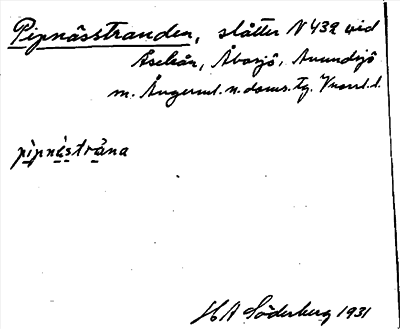 Pipnässtranden, slåtter N 432 vid
Åseleån, Åbosjö, Anundsjö
m. Ångerml. n. doms. tg. Vnorrl. l.
pìpnéstrȧna
H A Söderberg 1931